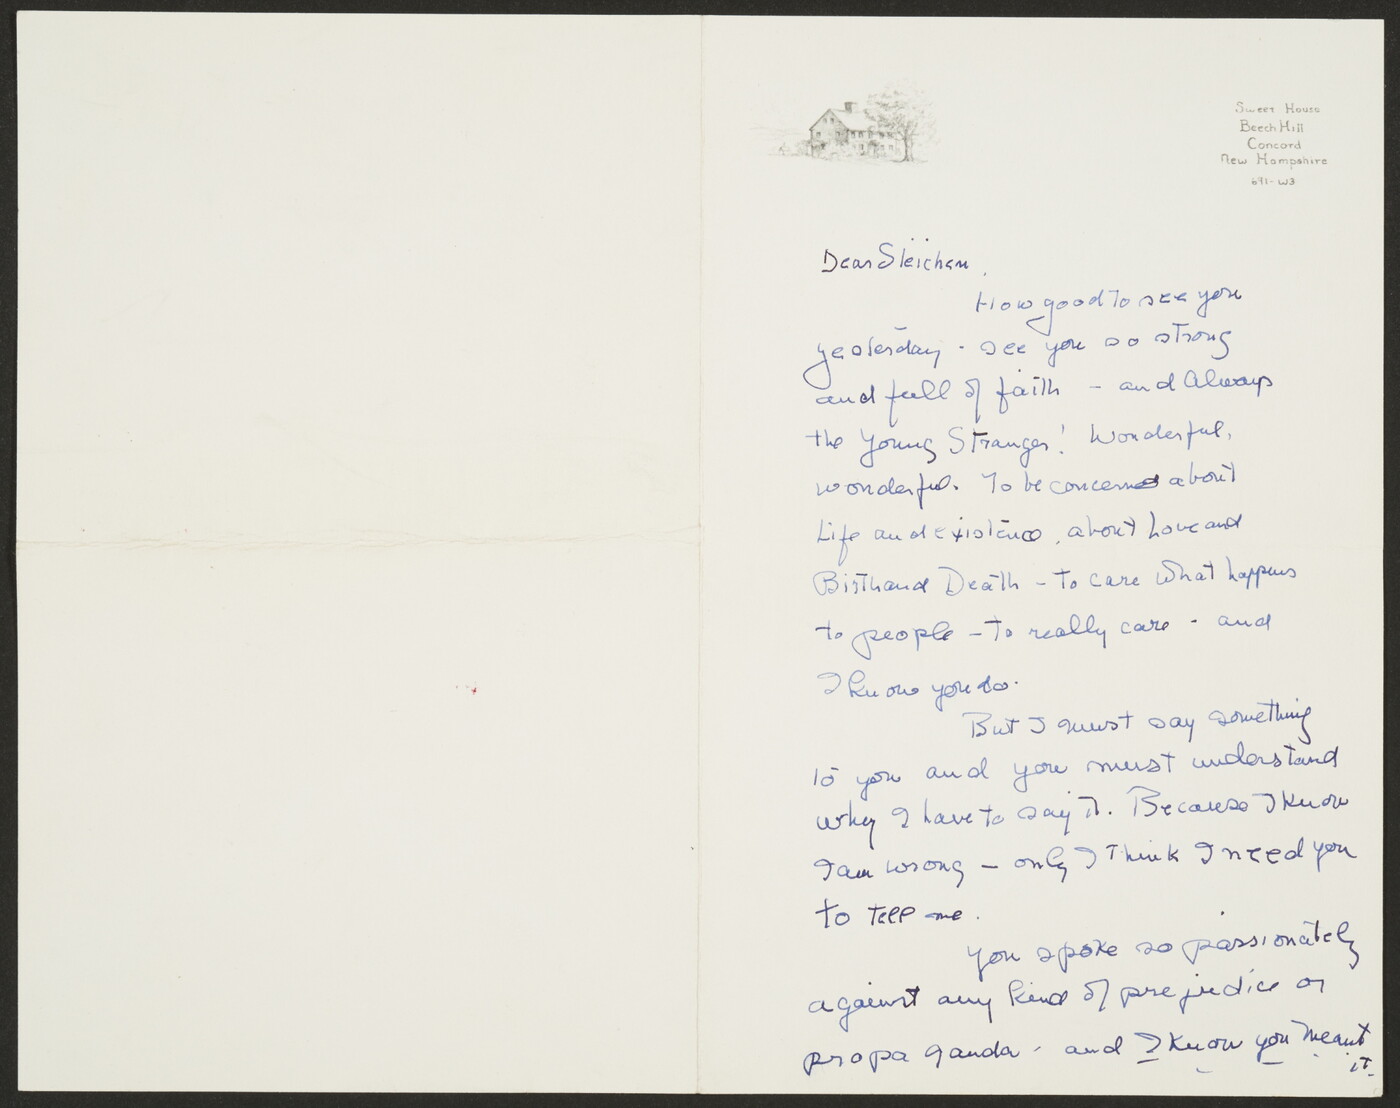 Sweet House
Beech Hill
Concord
New Hampshire
691-W3
Dear Steichen,
How good to see you
yesterday - see you so strong
and full of faith - and Always
the Young Stranger! Wonderful,
wonderful. To be concerned about
Life and existence, about Love and
Birth and Death - to care what happens
to people - to really care - and
I know you do.
But I must say something
to you and you must understand
why I have to say it. Because I know
I am wrong - only I think I need you
to tell me.
You spoke so passionately
against any kind of prejudice or
propaganda - and I know you meant
it.